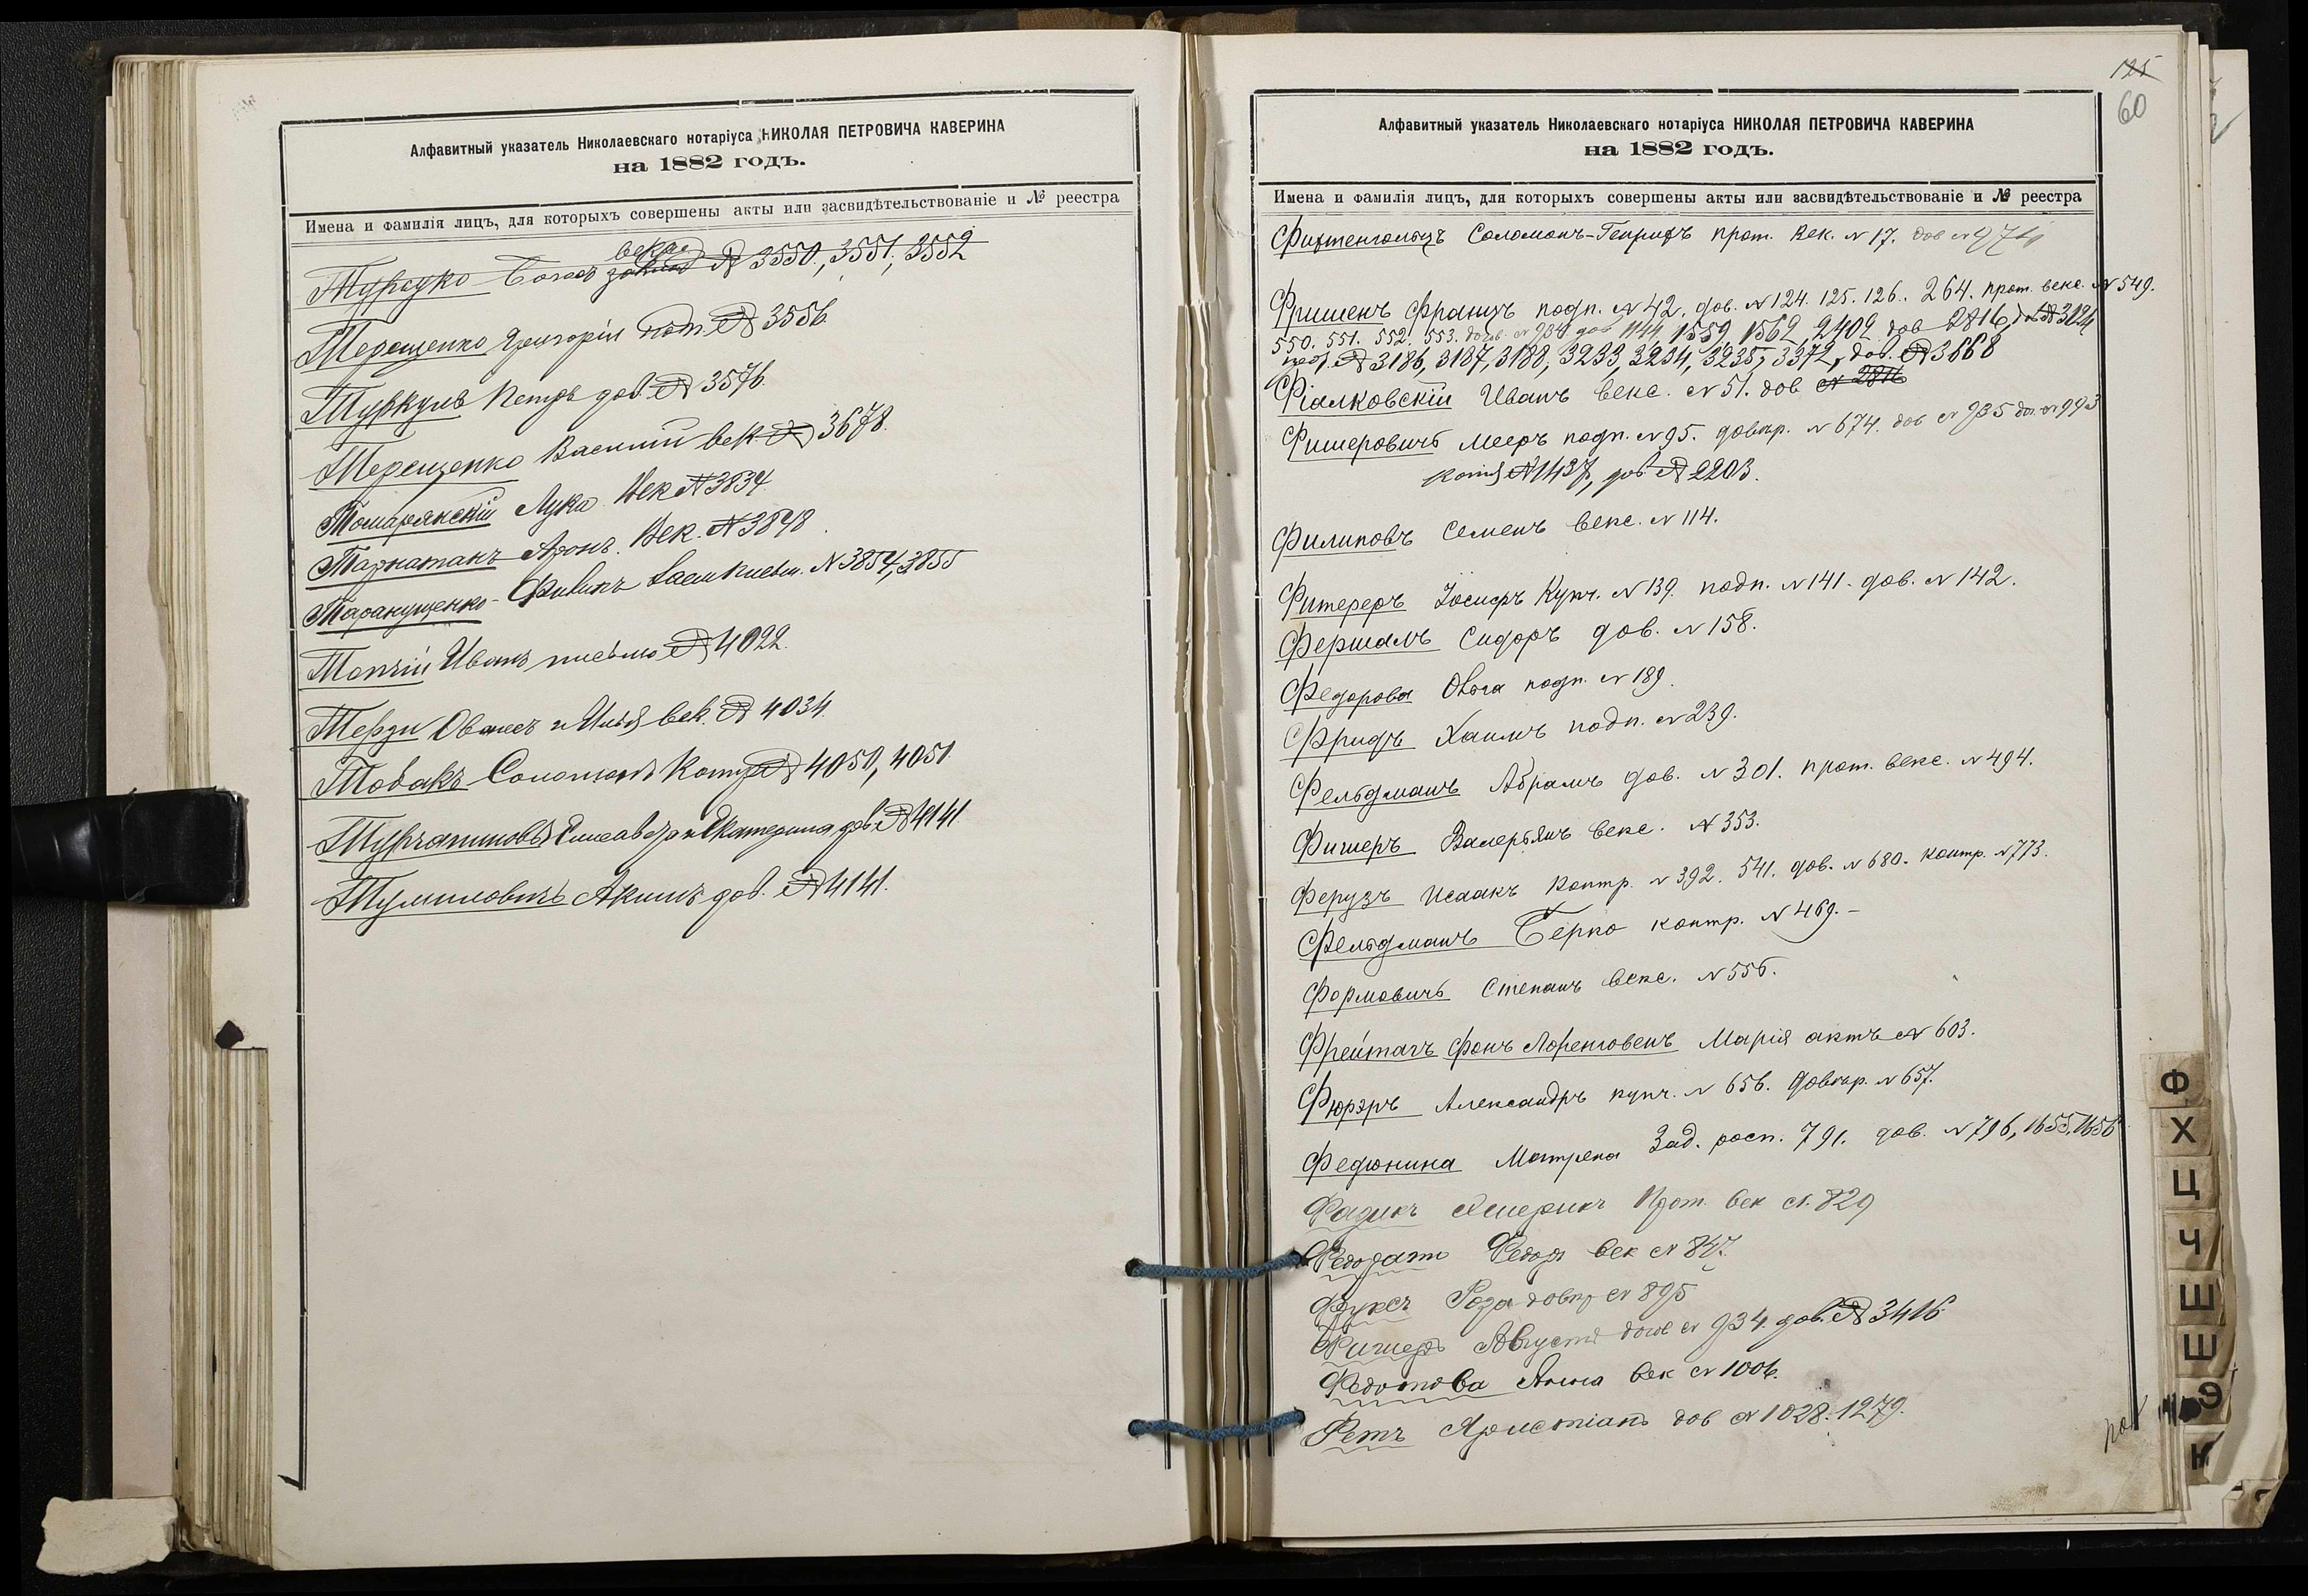 Алфавитный указатель Николаевскаго нотаріуса НИКОЛАЯ ПЕТРОВИЧА КАВЕРИНА
на 1882 годъ.
Имена и фамилія лицъ, для которыхъ совершены акты или засвидѣтельствованіе и № реестра
№ 3550, 3551, 3552
Терещенко Григорія № 3556
Петръ дов. № 3576
Терещенко Василій век. № 3678.
Лука Век № 3834
Аронъ. Век. № 3848
Таранущенко № 3854, 3855
Топчій Иванъ письмо № 4022.
Терзи Ованесъ и Илья век. № 4034.
Товакъ Соломонъ Копія № 4050, 4051
Елисавета и Екатерина дов. № 4141
Акимъ дов. № 4141.
125
60
Алфавитный указатель Николаевскаго нотаріуса НИКОЛАЯ ПЕТРОВИЧА КАВЕРИНА
на 1882 годъ.
Имена и фамилія лицъ, для которыхъ совершены акты или засвидѣтельствованіе и № реестра
Соломонъ-Генрихъ прот. Век. № 17. дов № 974
Фришенъ Францъ подп. № 42. дов. № 124. 125. 126. 264. прот. векс. № 549.
550. 551. 552. 553. № 930 дов 1144, 1559, 1562, 2409 дов 2816, 3024
№ 3186, 3187, 3188, 3233, 3234, 3235, 3372, дов. № 3668
Фіалковскій Иванъ векс. № 51. дов № 2816
Фишеровичъ Мееръ подп. № 95. довѣр. № 674. дов № 935 № 993
копія № 1437, дов № 2203.
Филиповъ Семенъ векс. № 114.
Фитереръ Іосифъ Купч. № 139. подп. № 141. дов. № 142.
Фершалъ Сидоръ дов. № 158.
Федорова Ольга подп. № 189.
Фридъ Хаимъ подп. № 239.
Фельдманъ Абрамъ дов. № 301. прот. векс. № 494.
Фишеръ Валерьянъ векс. № 353.
Ферузъ Исаакъ контр. № 392. 541. дов. № 680. контр. № 773.
Фельдманъ Берко контр. № 469.-
Формовичъ Степанъ векс. № 556.
Фрейтагъ фонъ Лоренговенъ Марія актъ № 603.
Фюрэръ Александръ купч. № 656. довѣр. № 657.
Федюнина Матрена Зад. росп. 791. дов. № 796, 1655, 1656
Прот. век № 829
Федоръ век № 847
Фуксъ Роза довѣр № 895
Фишеръ Августъ № 934. дов. № 3416
Федотова Анна век № 1006.
Фетъ дов № 1028. 1279.
Ф
Х
Ц
Ч
Ш
Ш
Э